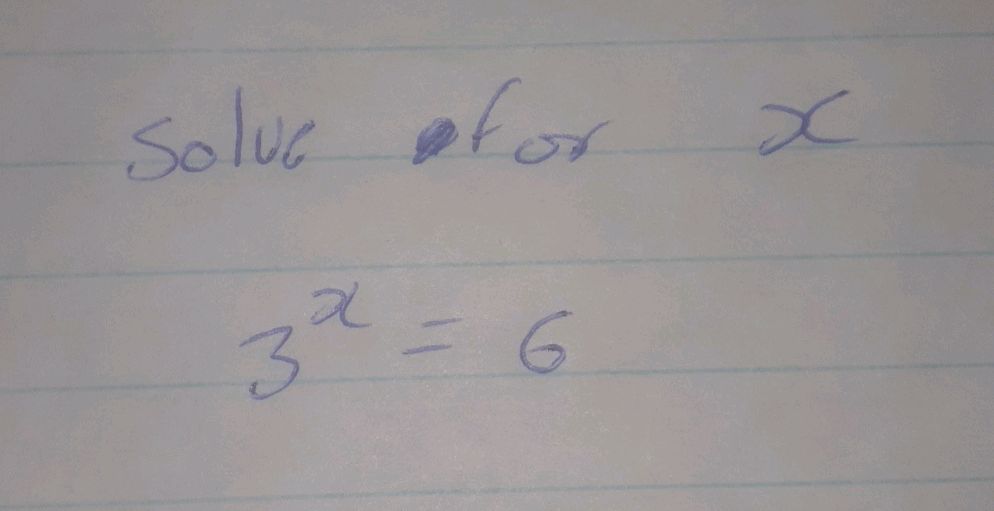 Solve for x
3^x = 6